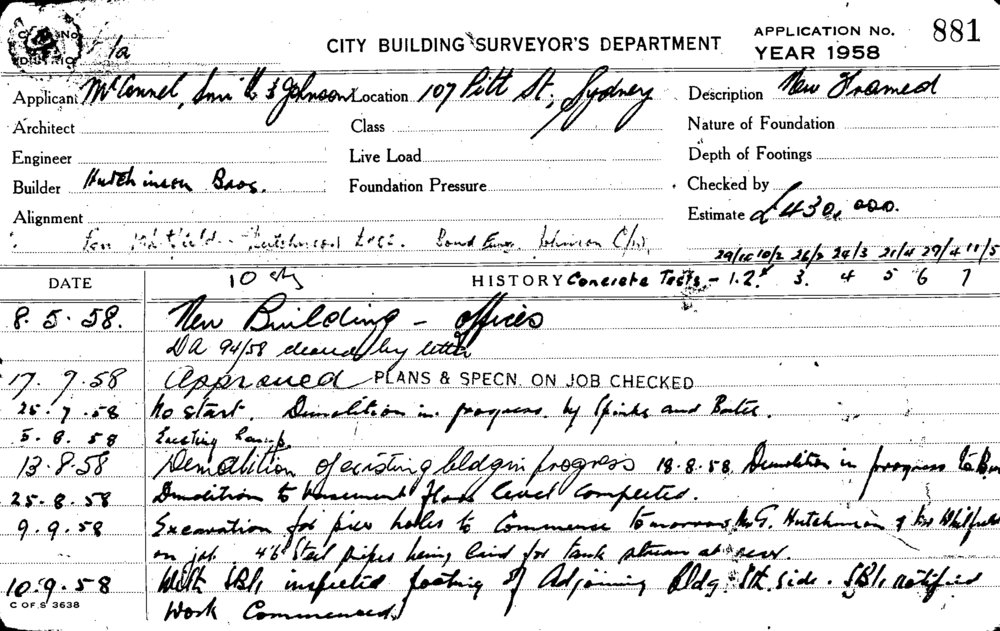 CITY BUILDING SURVEYOR'S DEPARTMENT
APPLICATION No. 881
YEAR 1958
Applicant McConnel, Smith & Johnson Location 107 Pitt St, Sydney Description New Framed
Architect Class Nature of Foundation
Engineer Live Load Depth of Footings
Builder Hutchinson Bros. Foundation Pressure Checked by
Alignment Estimate £430,000.
Johnson
26/2 24/3 21/4 29/4 11/5
DATE 10 sty HISTORY Concrete Tests - 1.2. 3. 4 5 6 7
8.5.58. New Building - offices
DA 94/58 cleared by letter
17.7.58 Approved PLANS & SPECN. ON JOB CHECKED
25.7.58 No start. Demolition in progress by and
5.8.58 Erecting
13.8.58 Demolition of existing bldg in progress 18.8.58. Demolition in progress to
25.8.58 Demolition to basement floor level completed.
9.9.58 Excavation for pier holes to commence tomorrow Mr G. Hutchinson
on job 4'6" Steel pipes being laid for tank stream at rear.
10.9.58 With inspected footing of Adjoining Bldg. Sth. side. notified
Work Commenced.
C OF S 3638